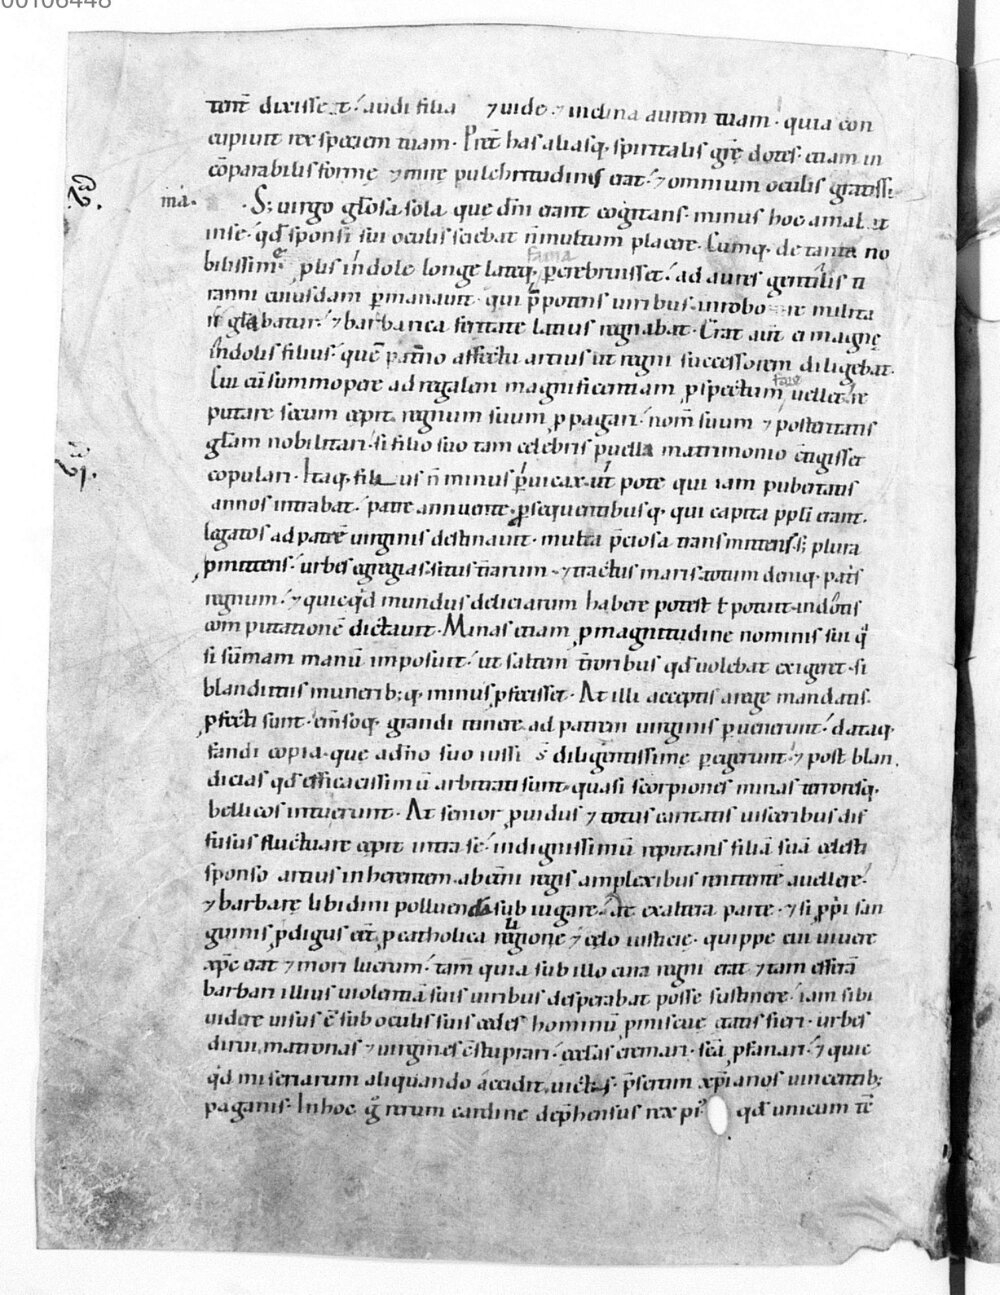 00106448
tenť dixisse t: audi filia ⁊ uide ⁊ inclina aurem tuam. quia con
cupiuit rex speciem tuam. Pret̄ has alias q; spiritalis grę̄ dotes. etiam in
cōparabilis formę ⁊ mirę pulchritudinis erat. ⁊ omnium oculis gratissi
ma. S; uirgo głosa. sola que dn̄i erant cogitans. minus hoc amal at
in se. qd̄ sponsi sui oculis sciebat n̄ multum placere. Cumq; de tanta no
fama
bilissimę plis indole longe lateq; ꝑcrebruisset. ad aures gentilis ti
ranni cuiusdam ꝑmanauit. qui p̄potens uiribus. in robore milita
ri gl̄abatur. ⁊ barbarica feritate latius regnabat. Erat aut̄ ei magnę
indolis filius. quē paterno affectu artius ut regni successorem diligebat.
Cui cū summopere ad regalem magnificentiam ꝓspectum uellet. re
putare secum cepit. regnum suum ꝓpagari. nom̄ suum ⁊ posteritatis
gl̄am nobilitari. si filio suo tam celebris puella matrimonio ctīgisset
copulari. Itaq; filius n̄ minus ꝑuicax. ut pote qui iam pubertatis
annos intrabat. patre annuente. ꝓsequentibusq; qui capita ppl̄i erant.
legatos ad patrē uirginis destinauit. multa p̄ciosa transmittens. s; plura
ꝓmittens. urbes egregias. situs t̄rarum. ⁊ tractus maris. totum deniq; patris
regnum. ⁊ quicq̄d mundus deliciarum habere potest ł potuit. in dotis
computationē dictauit. Minas etiam ꝓ magnitudine nominis sui q̄
si sūmam manū imposuit. ut saltem t̄roribus qd̄ uolebat exigeret. si
blanditiis munerib; q; minus ꝓfecisset. At illi acceptis a rege mandatis.
ꝓfecti sunt. em̄soq; grandi itinere ad patrem uirginis ꝑuenerunt. dataq;
fandi copia. que a dn̄o suo iussi s̄ diligentissime ꝑegerunt. ⁊ post blan
dicias qd̄ efficacissimū arbitrati sunt. quasi scorpiones minas terroresq;
bellicos intulerunt. At senior ꝓuidus ⁊ totus caritatis uisceribus dif
fusus fluctuare cepit intra se. indignissimū reputans filiā suā celesti
sponso artius inherentem. ab et̄ni regis amplexibus renitentē auellere.
⁊ barbarę libidini polluendā subiugare. at ex altera parte. ⁊ si ꝓprii san
guinis ꝓdigus eēt ꝓ catholica religione ⁊ celo iusticię. quippe cui uiuere
xp̄c erat ⁊ mori lucrum. tam̄ quia sub illo cura regni erat ⁊ tam efferā
barbari illius uiolentiā suis uiribus desperabat posse sustinere. iam sibi
uidere uisus ē sub oculis suis cedes hominū ꝓmiscue etatis fieri. urbes
dirui. matronas ⁊ uirgines cstuprari. ecclas cremari. scā ꝓfanari. ⁊ quic
qd̄ miseriarum aliquando accidit. uictis p̄sertim xp̄ianos uincentib;
paganis. In hoc g̊ rerum cardine dep̄hensus rex pi qd̄ unicum tē